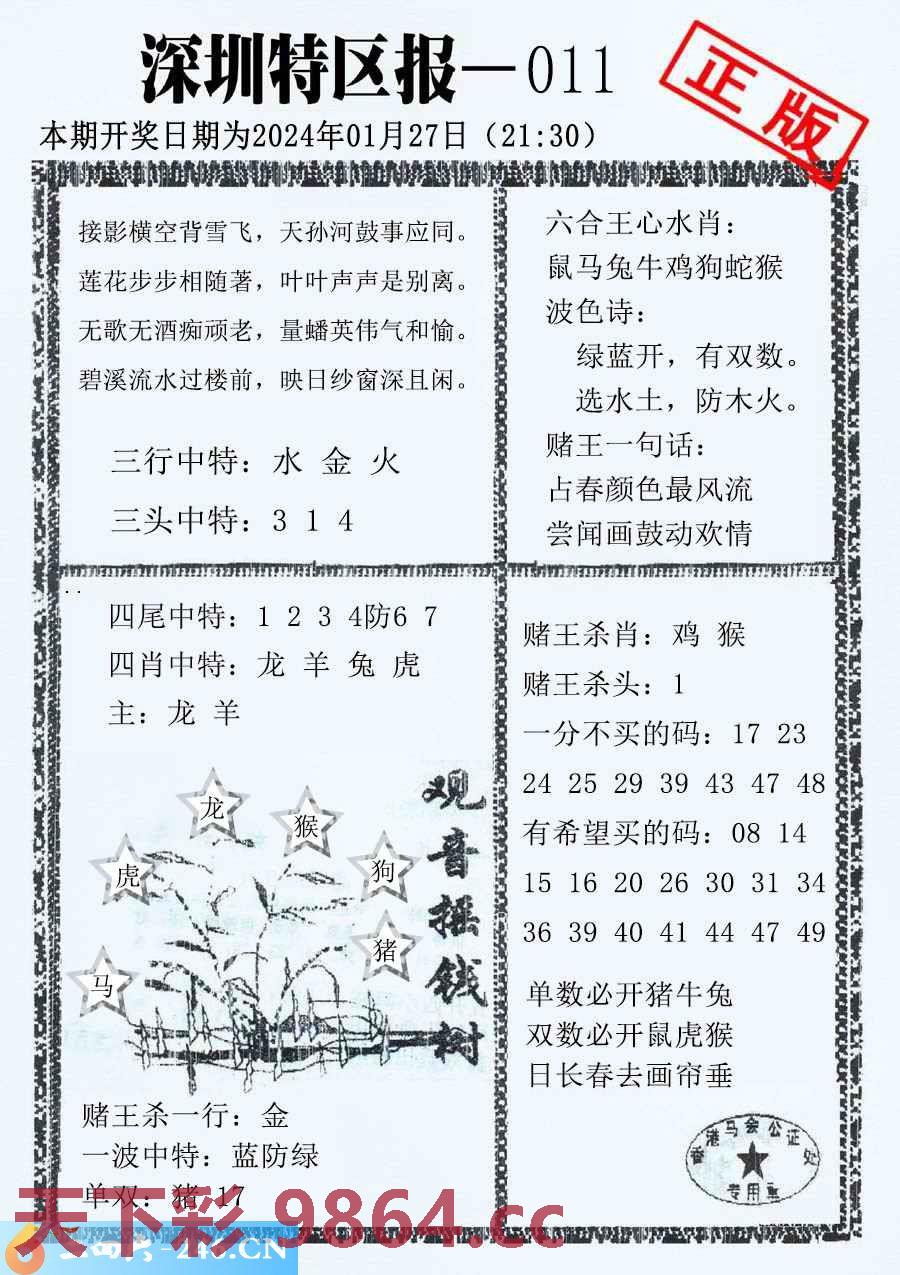 深圳特区报—011
正版
本期开奖日期为2024年01月27日（21:30）
接影横空背雪飞，天孙河鼓事应同。
莲花步步相随著，叶叶声声是别离。
无歌无酒痴顽老，量蟠英伟气和愉。
碧溪流水过楼前，映日纱窗深且闲。
三行中特：水 金 火
三头中特：3 1 4
六合王心水肖：
鼠马兔牛鸡狗蛇猴
波色诗：
绿蓝开，有双数。
选水土，防木火。
赌王一句话：
占春颜色最风流
尝闻画鼓动欢情
四尾中特：1 2 3 4防6 7
四肖中特：龙 羊 兔 虎
主：龙 羊
龙
猴
虎
狗
猪
马
观音摇钱树
赌王杀一行：金
一波中特：蓝防绿
单双：猪 17
赌王杀肖：鸡 猴
赌王杀头：1
一分不买的码：17 23
24 25 29 39 43 47 48
有希望买的码：08 14
15 16 20 26 30 31 34
36 39 40 41 44 47 49
单数必开猪牛兔
双数必开鼠虎猴
日长春去画帘垂
香港马会公证处
专用章
天下彩 9864.cc